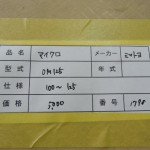 品名 マイクロ メーカー ミツトヨ
型式 OM125 年式
仕様 100~125
価格 5,000 番号 1798